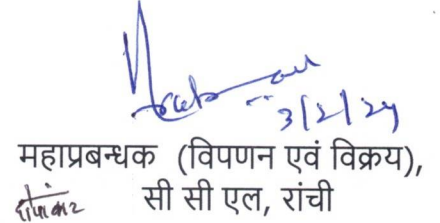 3/2/24
महाप्रबन्धक (विपणन एवं विक्रय),
सी सी एल, रांची